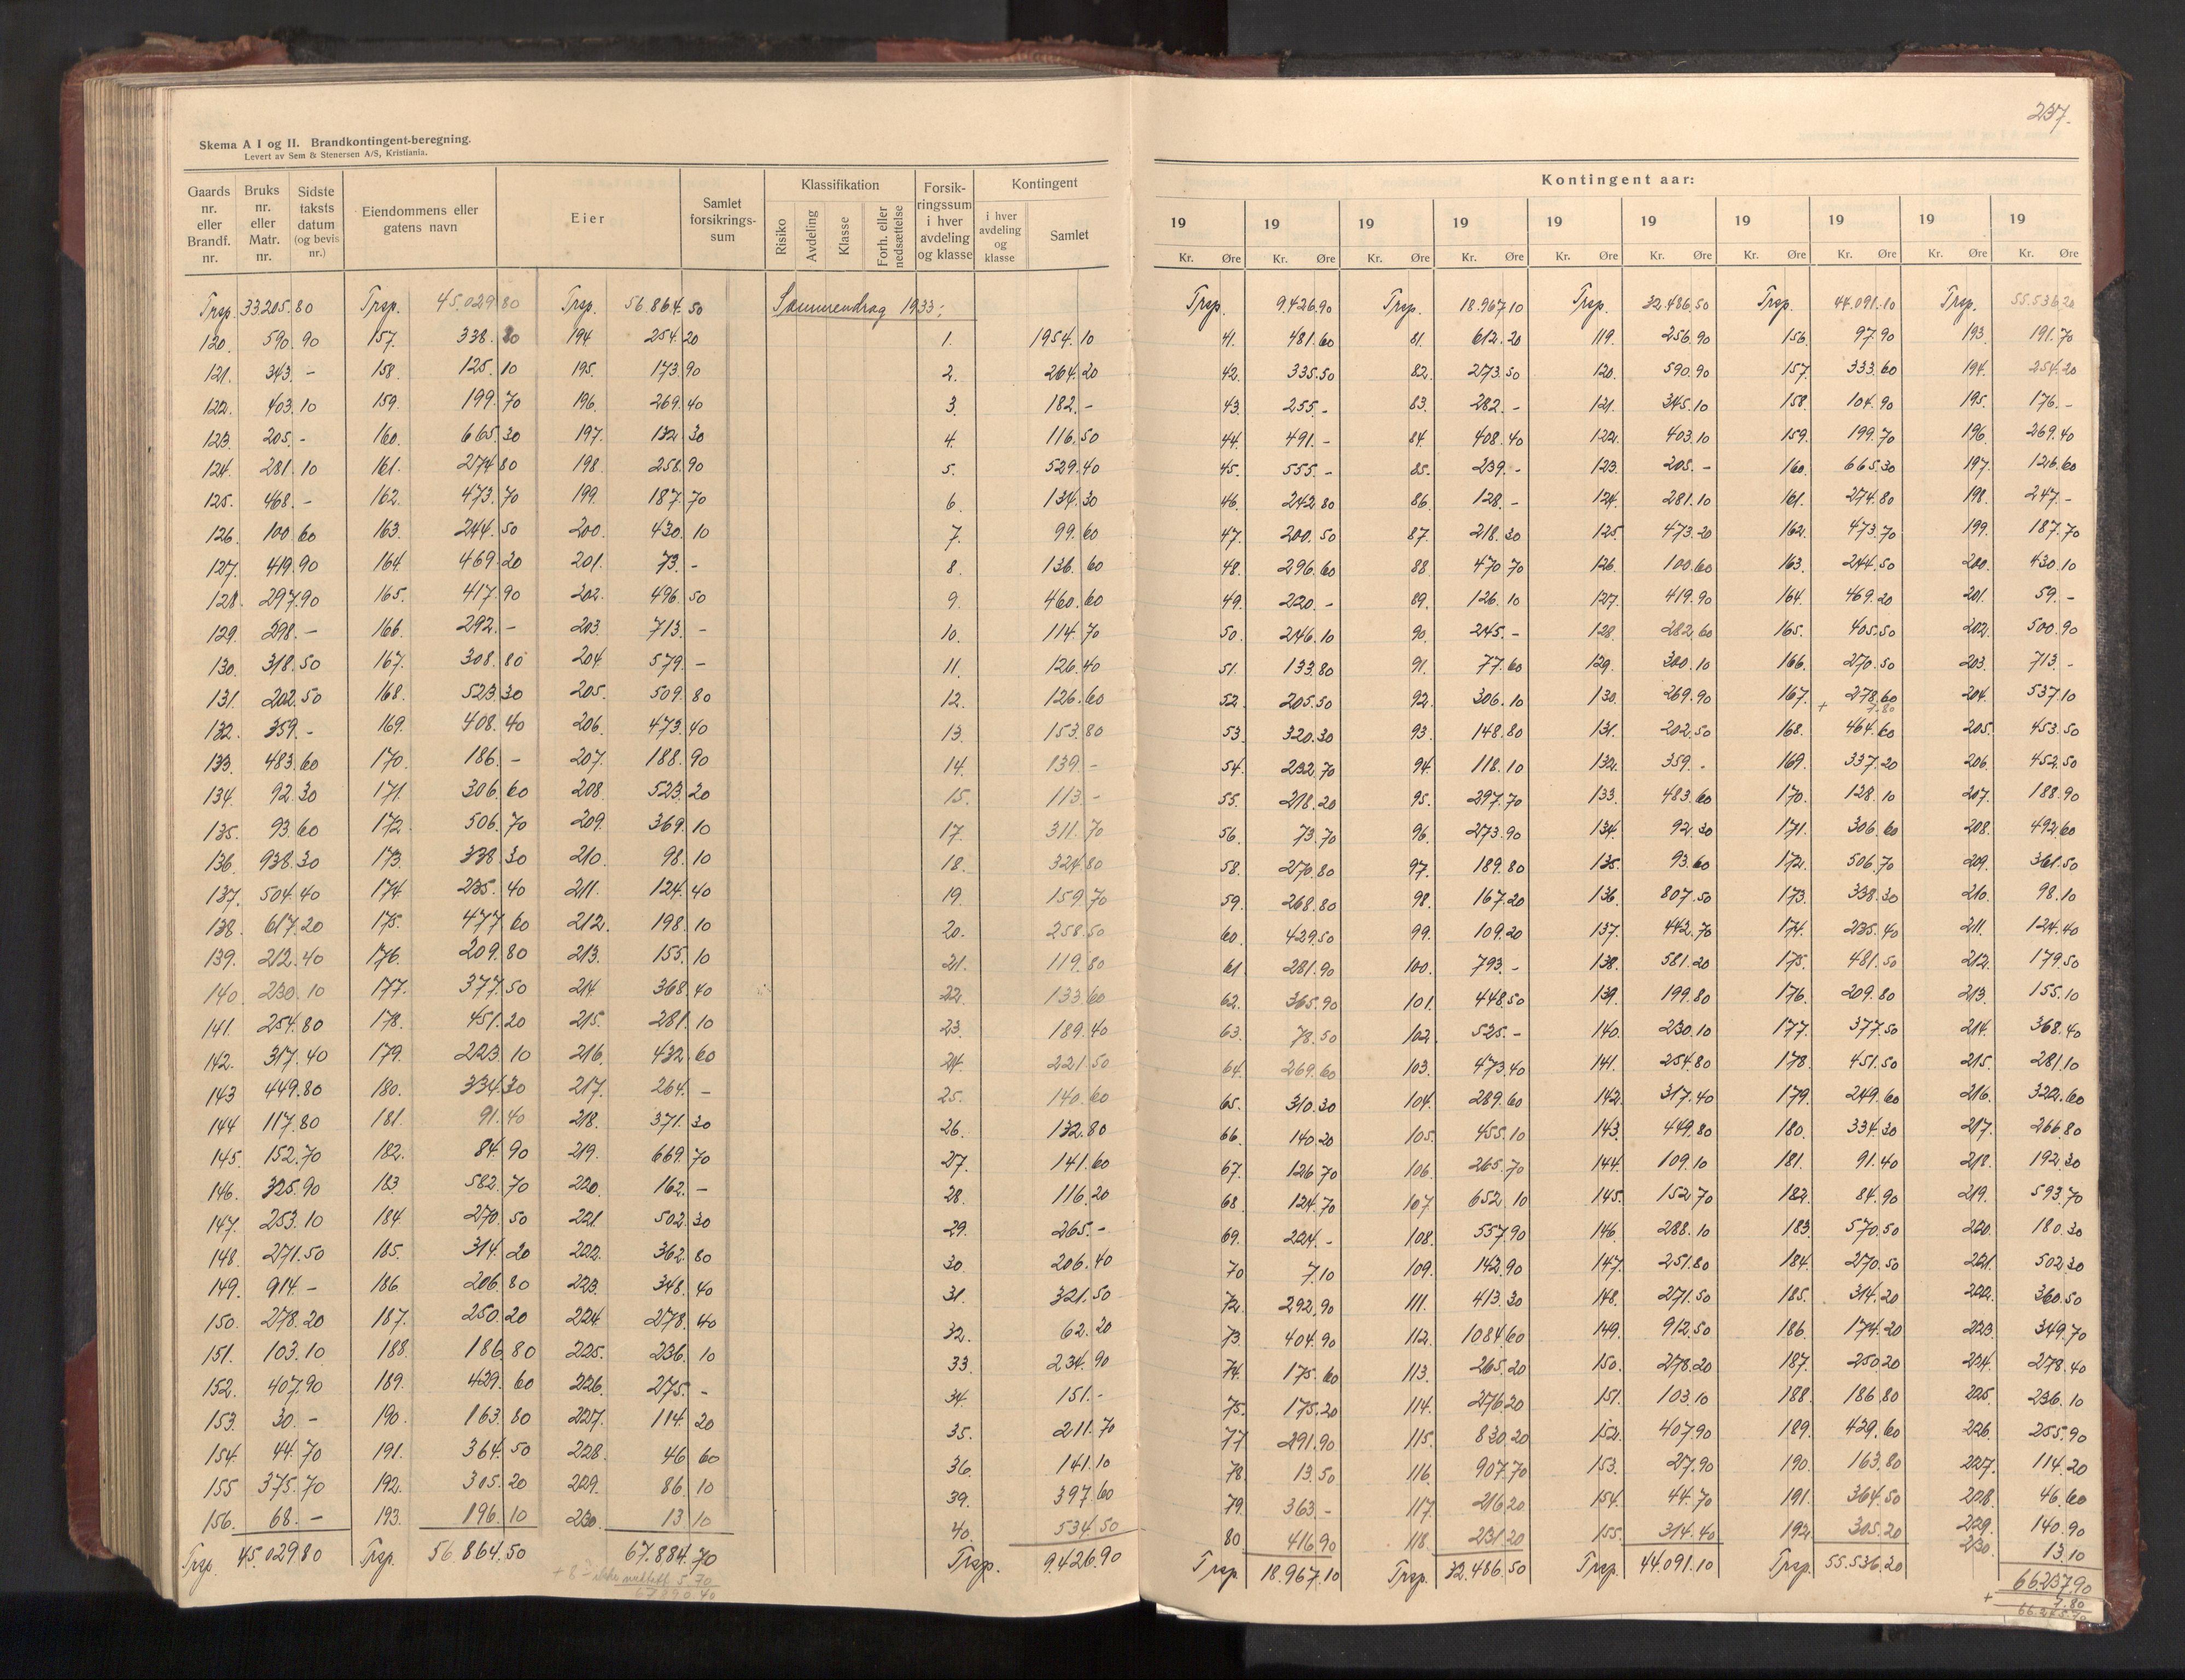 237.
Skema A I og II. Brandkontingent-beregning.
Levert av Sem & Stenersen A/S, Kristiania.
Gaards nr. eller Brandf. nr. | Bruks nr. eller Matr. nr. | Sidste taksts datum (og bevis nr.) | Eiendommens eller gatens navn | Eier | Samlet forsikrings-sum | Klassifikation | Risiko | Avdeling | Klasse | Forh. eller nedsættelse | Forsik-ringssum i hver avdeling og klasse | Kontingent | i hver avdeling og klasse | Samlet
Trsp. 33.205.80 Trsp. 45.029.80 Trsp. 56.864.50 Sammendrag 1933:
120. 590.90 157. 338.20 194 254.20 1. 1954.10
121. 343.- 158. 125.10 195. 173.90 2. 264.20
122. 403.10 159. 199.70 196. 269.40 3. 182.-
123. 205.- 160. 665.30 197. 132.30 4. 116.50
124. 281.10 161. 274.80 198. 258.90 5. 529.40
125. 468.- 162. 473.70 199. 187.70 6. 134.30
126. 100.60 163. 244.50 200. 430.10 7. 99.60
127. 419.90 164 469.20 201. 73.- 8. 136.60
128. 297.90 165. 417.90 202. 496.50 9. 460.60
129. 298.- 166. 292.- 203. 713.- 10. 114.70
130. 318.50 167. 308.80 204 579.- 11. 126.40
131. 202.50 168. 523.30 205. 509.80 12. 126.60
132. 359.- 169. 408.40 206. 473.40 13. 153.80
133. 483.60 170. 186.- 207. 188.90 14. 139.-
134. 92.30 171. 306.60 208. 523.20 15. 113.-
135. 93.60 172. 506.70 209. 369.10 17. 311.70
136. 938.30 173. 338.30 210. 98.10 18. 324.80
137. 504.40 174. 235.40 211. 124.40 19. 159.70
138. 617.20 175. 477.60 212. 198.10 20. 258.50
139. 212.40 176. 209.80 213. 155.10 21. 119.80
140. 230.10 177. 377.50 214 368.40 22. 133.60
141. 254.80 178. 451.20 215. 281.10 23. 189.40
142. 317.40 179. 223.10 216. 432.60 24. 221.50
143 449.80 180. 334.30 217. 264.- 25. 140.60
144 117.80 181. 91.40 218. 371.30 26. 132.80
145. 152.70 182. 84.90 219. 669.70 27. 141.60
146. 325.90 183 582.70 220. 162.- 28. 116.20
147. 253.10 184. 270.50 221 502.30 29. 265.-
148. 271.50 185. 314.20 222. 362.80 30. 206.40
149. 914.- 186 206.80 223. 348.40 31. 321.50
150. 278.20 187. 250.20 224. 278.40 32. 62.20
151. 103.10 188. 186.80 225. 236.10 33. 234.90
152. 407.90 189. 429.60 226. 275.- 34. 151.-
153. 30.- 190. 163.80 227. 114.20 35. 211.70
154. 44.70 191. 364.50 228. 46.60 36. 141.10
155 375.70 192. 305.20 229. 86.10 39. 397.60
156. 68.- 193. 196.10 230. 13.10 40. 534.50
Trsp. 45.029.80 Trsp. 56.864.50 67.884.70 Trsp. 9.426.90
5.70
67890.40
Kontingent aar:
19 19 19 19 19 19 19 19 19 19
Kr. Øre Kr. Øre Kr. Øre Kr. Øre Kr. Øre Kr. Øre Kr. Øre Kr. Øre Kr. Øre Kr. Øre
Trsp. 9.426.90 Trsp. 18.967.10 Trsp. 32.486.50 Trsp. 44.091.10 Trsp. 55.536.20
41. 481.60 81. 612.20 119. 256.90 156. 97.90 193. 191.70
42. 335.50 82. 273.50 120. 590.90 157. 333.60 194. 254.20
43. 255.- 83. 282.- 121. 345.10 158. 104.90 195. 176.-
44. 491.- 84. 408.40 122. 403.10 159. 199.70 196. 269.40
45. 555.- 85. 239.- 123. 205.- 160. 665.30 197. 126.60
46. 242.80 86. 128.- 124. 281.10 161. 274.80 198. 247.-
47. 200.50 87. 218.30 125. 473.20 162. 473.70 199. 187.70
48. 296.60 88. 470.70 126. 100.60 163. 244.50 200. 430.10
49. 220.- 89. 126.10 127. 419.90 164. 469.20 201. 59.-
50. 246.10 90. 245.- 128. 282.60 165. 405.50 202. 500.90
51. 133.80 91. 77.60 129. 300.10 166. 270.50 203. 713.-
52. 205.30 92. 306.10 130. 269.90 167. 278.60 204. 537.10
+ 7.80
53. 320.30 93. 148.80 131. 202.50 168. 464.60 205. 453.50
54. 232.70 94. 118.10 132. 359.- 169. 337.20 206. 452.50
55. 218.20 95. 297.70 133. 483.60 170. 128.10 207. 188.90
56. 73.70 96. 273.90 134. 92.30 171. 306.60 208. 492.60
58. 270.80 97. 189.80 135. 93.60 172. 506.70 209. 361.50
59. 268.80 98. 167.20 136. 807.50 173. 338.30 210. 98.10
60. 429.50 99. 109.20 137. 442.70 174. 235.40 211. 124.40
61 281.90 100. 793.- 138. 581.20 175. 481.50 212. 179.50
62. 365.90 101. 448.50 139. 199.80 176. 209.80 213. 155.10
63. 78.50 102. 525.- 140. 230.10 177. 377.50 214. 368.40
64. 269.60 103. 473.40 141. 254.80 178. 451.50 215. 281.10
65. 310.30 104. 289.60 142. 317.40 179. 249.60 216. 322.60
66. 140.20 105. 455.10 143. 449.80 180. 334.30 217. 266.80
67. 126.70 106. 265.70 144. 109.10 181. 91.40 218. 192.30
68. 124.70 107. 652.10 145. 152.70 182. 84.90 219. 593.70
69. 224.- 108. 557.90 146. 288.10 183. 570.50 220. 180.30
70 7.10 109. 142.90 147. 251.80 184. 270.50 221. 502.30
72. 292.90 111. 413.30 148. 271.50 185. 314.20 222. 360.50
73. 404.90 112. 1084.60 149. 912.50 186. 174.20 223. 349.70
74. 175.60 113. 265.20 150. 278.20 187. 250.20 224. 278.40
75. 175.20 114. 276.20 151. 103.10 188. 186.80 225. 236.10
77 291.90 115. 830.20 152. 407.90 189. 429.60 226. 255.90
78. 13.50 116. 907.70 153. 27.90 190. 163.80 227. 114.20
79. 363.- 117. 216.20 154. 44.70 191. 364.50 228. 46.60
80 416.90 118. 231.20 155. 314.40 192. 305.20 229. 140.90
230. 13.10
Trsp. 18.967.10 Trsp. 32.486.50 Trsp. 44.091.10 Trsp. 55.536.20 66237.90
+ 7.80
66.245.70